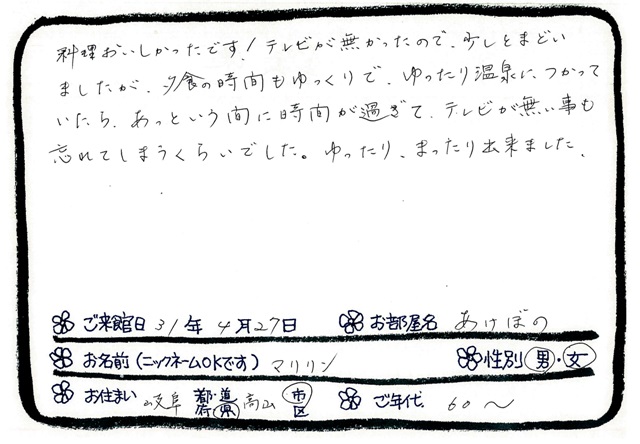 料理おいしかったです!テレビが無かったので、少しとまどい
ましたが、夕食の時間もゆっくりで、ゆったり温泉に、つかって
いたら、あっという間に時間が過ぎて、テレビが無い事も
忘れてしまうくらいでした。ゆったり、まったり出来ました、
ご来館日 31年 4月27日 お部屋名 あけぼの
お名前(ニックネームOKです) マリリン 性別 男・女
お住まい 岐阜 都・道・府・県 高山 市区 ご年代 60~